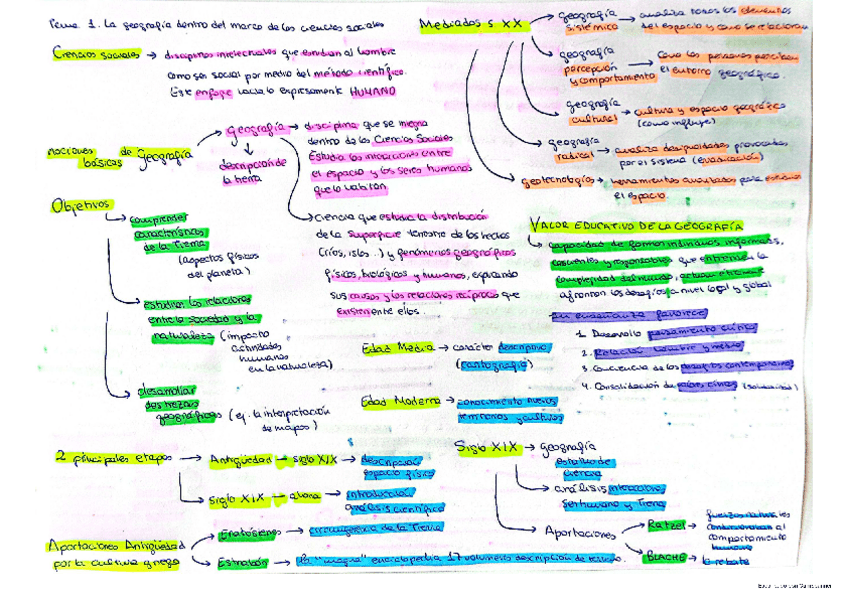 Tema 1. La geografía dentro del marco de las ciencias sociales
Ciencias sociales → disciplinas intelectuales que estudian al hombre
como ser social por medio del método científico.
Este enfoque hacia lo expresamente HUMANO
nociones básicas de geografía
geografía → disciplina que se integra
dentro de las Ciencias Sociales
Estudia las interacciones entre
el espacio y los seres humanos
que lo habitan
descripción de
la tierra
Ciencia que estudia la distribución
de la superficie terrestre de los hechos
(ríos, islas..) y fenómenos geográficos
físicos, biológicos y humanos, explicando
sus causas y las relaciones recíprocas que
existen entre ellos.
Objetivos
comprender
características
de la Tierra
(aspectos físicos
del planeta)
estudiar las relaciones
entre la sociedad y la
naturaleza (impacto
actividades
humanas
en la naturaleza)
desarrollar
destrezas
geográficas (ej. la interpretación
de mapas)
Edad Media → carácter descriptivo
(cartografía)
Edad Moderna → conocimiento nuevos
territorios y culturas
2 principales etapas → Antigüedad → siglo XIX → descripción
espacio físico
Siglo XIX → ahora → introducción
análisis científico
Aportaciones Antigüedad
por la cultura griega
Eratóstenes → circunferencia de la Tierra
Estrabón → la "magna" enciclopedia 17 volúmenes descripción de
Mediados s XX
geografía
sistémica → analiza todos los elementos
del espacio y como se relacionan
geografía
percepción
y comportamiento → Como las personas perciben
el entorno geográfico.
geografía
cultural → cultura y espacio geográfico
(como influye)
geografía
radical → analiza desigualdades provocadas
por el sistema
geotecnologías → herramientas avanzadas para estudiar
el espacio.
VALOR EDUCATIVO DE LA GEOGRAFÍA
capacidad de formar individuos informados,
conscientes y responsables que entienden la
complejidad del mundo, actúan
afrontan los desafíos a nivel local y global
Su enseñanza favorece
1. Desarrollo pensamiento crítico
2. Relación hombre y medio
3. Conciencia de los desafíos contemporáneos
4. Consolidación de valores cívicos (solidaridad)
Siglo XIX → geografía
estatus de
ciencia
análisis interacciones
ser humano y Tierra
Aportaciones
Ratzel → fuerzas naturales
al
comportamiento
humano
BLACHE → le rebate